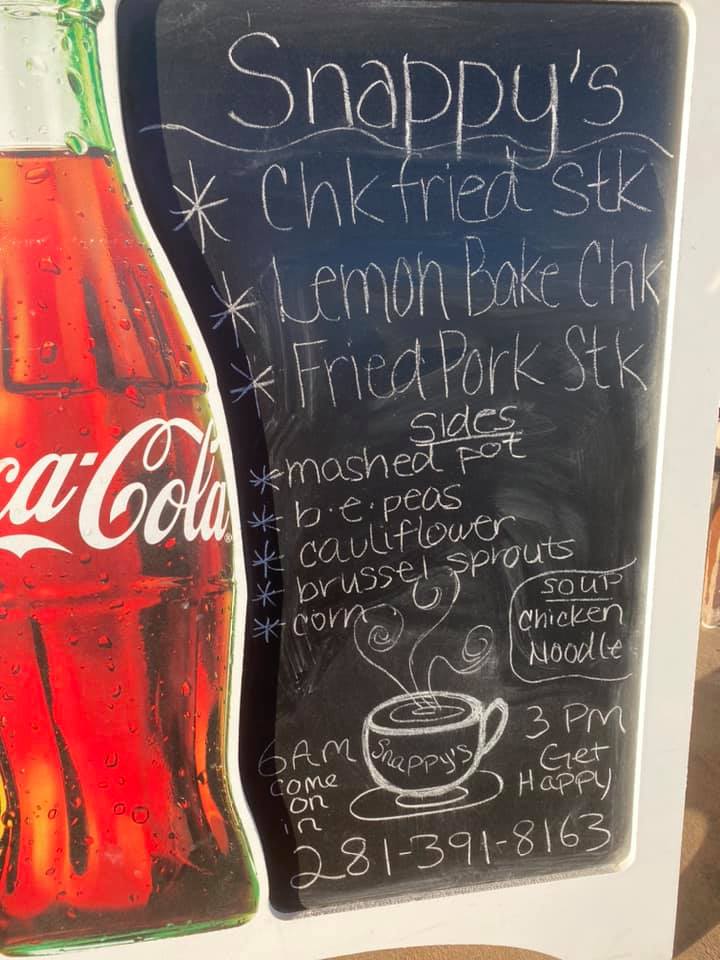 Snappy's
* Chk fried Stk
* Lemon Bake Chk
* Fried Pork Stk
Sides
* mashed pot
* b.e. peas
* cauliflower
* brussel sprouts
* corn
soup
chicken
Noodle
Snappy's
6AM
come
on
in
3 PM
Get
Happy
281-391-8163
ca-Cola